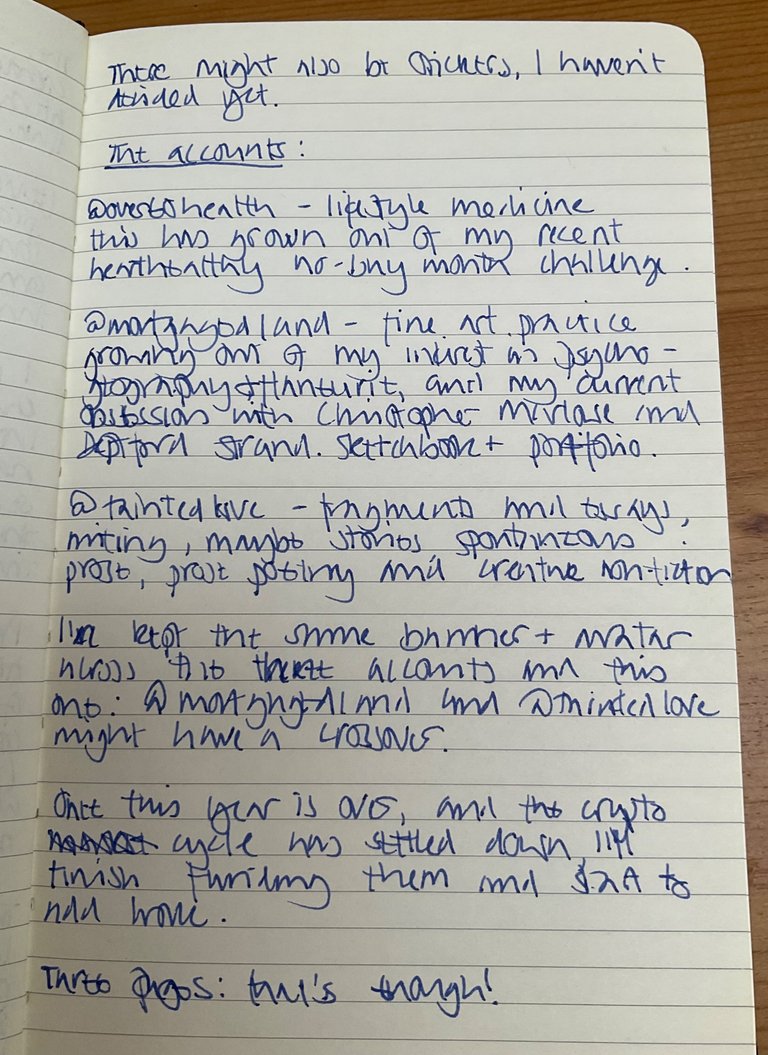 There might also be stickers, I haven't
decided yet.
The accounts:
health - lifestyle medicine
this has grown out of my recent
healthy no-buy month challenge.
@mortgagedland - fine art practice
growing out of my interest in psycho-
geography + flanturit, and my current
obsession with Christopher Marlowe and
Deptford Strand. Sketchbook + portfolio.
@taintedlove - fragments and essays,
writing, maybe stories spontaneous
prose, prose poetry and creative non-fiction
I've kept the same banner + avatar
across the three accounts and this
one: @mortgagedland and @taintedlove
might have a crossover.
Once this year is over, and the crypto
cycle has settled down I'll
finish funding them and to
add more.
Three pages: that's enough!